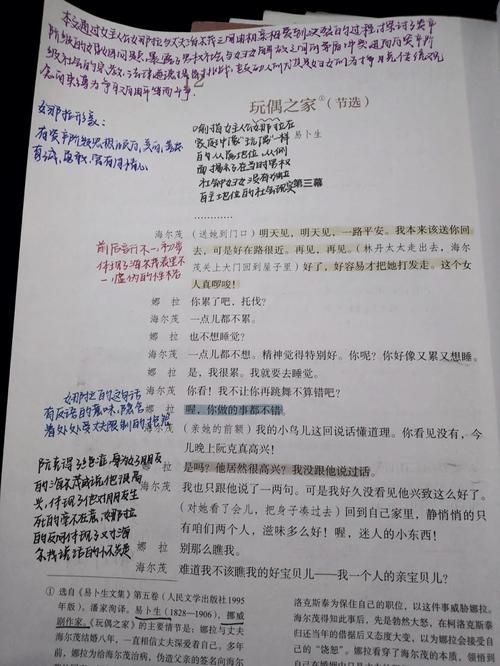 本文通过女主人公娜拉与丈夫海尔茂之间由相亲相爱到决裂的过程,探讨了资产
阶级的婚姻问题,暴露了男权社会与妇女解放之间的矛盾冲突,进而向资产阶
级社会的宗教、法律、道德提出挑战,
2
玩偶之家①(节选)
易卜生
喻指女主人公娜拉在
家庭中像“玩偶”一样
的从属地位,从侧
面揭示了在当时男权
社会中妇女没有独立
自主地位的社会现实
第三幕
娜拉形象:
有资产阶级思想的
真诚、勇敢、富有
海尔茂 (送她到门口)明天见,明天见,一路平安。我本来该送你回
去,可是好在路很近。再见,再见。(林丹太太走出去,海尔
茂关上大门回到屋子里)好了,好容易才把她打发走。这个女
人真啰唆!
前后言行不一,初步
体现了海尔茂表里不
一,虚伪的性格
娜 拉 你累了吧,托伐?
海尔茂 一点儿都不累。
娜 拉 也不想睡觉?
海尔茂 一点儿都不想。精神觉得特别好。你呢?你好像又累又想睡。
娜 拉 是,我很累。我就要去睡觉。
海尔茂 你看!我不让你再跳舞不算错吧?
娜 拉 喔,你做的事都不错。
娜拉的这句话
有反语的意味,隐含
着处处受丈夫限制的
海尔茂 (亲她的前额)我的小鸟儿这回说话懂道理。你看见没有,今
儿晚上阮克真高兴!
娜 拉 是吗?他居然很高兴?我没跟他说过话。
海尔茂 我也只跟他说了一两句。可是我好久没看见他兴致这么好了。
(对她看了会儿,把身子凑过去)回到自己家里,静悄悄的只
有咱们两个人,滋味多么好!喔,迷人的小东西!
娜 拉 别那么瞧我。
海尔茂 难道我不该瞧我的好宝贝儿——我一个人的亲宝贝儿?
阮克得了绝症,身为好朋友
的海尔茂却说他很高
兴,体现了他对朋友生
死的漠不在意,娜拉
的反问体现了对海
尔茂说话的
① 选自《易卜生文集》第五卷(人民文学出版社1995
年版)。潘家洵译。易卜生(1828—1906),挪威
剧作家。《玩偶之家》的主要情节是:娜拉与丈夫
海尔茂结婚八年,一直相信丈夫深爱着自己。多年
前,娜拉为给海尔茂治病,伪造父亲的签名向
洛克斯泰为保住自己的职位,以这件事威胁娜拉。
海尔茂得知此事后,先是勃然大怒,在柯洛克斯泰
归还当年的借据后又态度大变,以为娜拉会接受自
己的“饶恕”。娜拉看到了